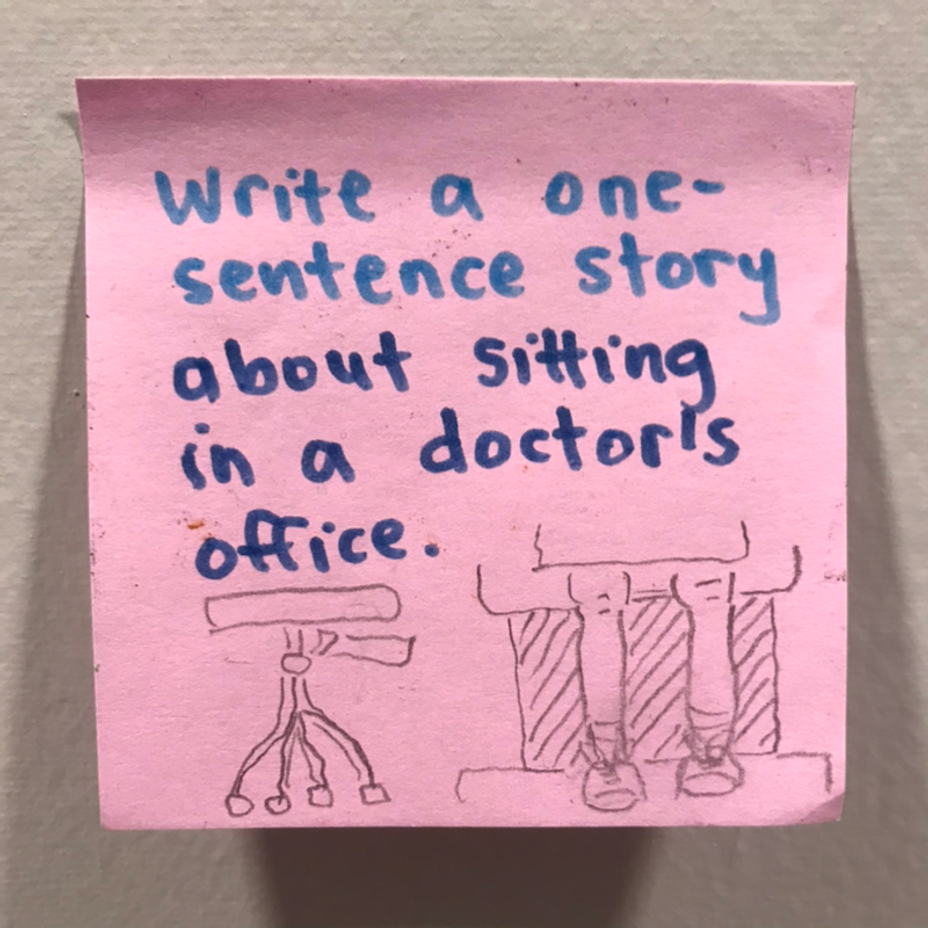 Write a one-
sentence story
about sitting
in a doctor's
office.